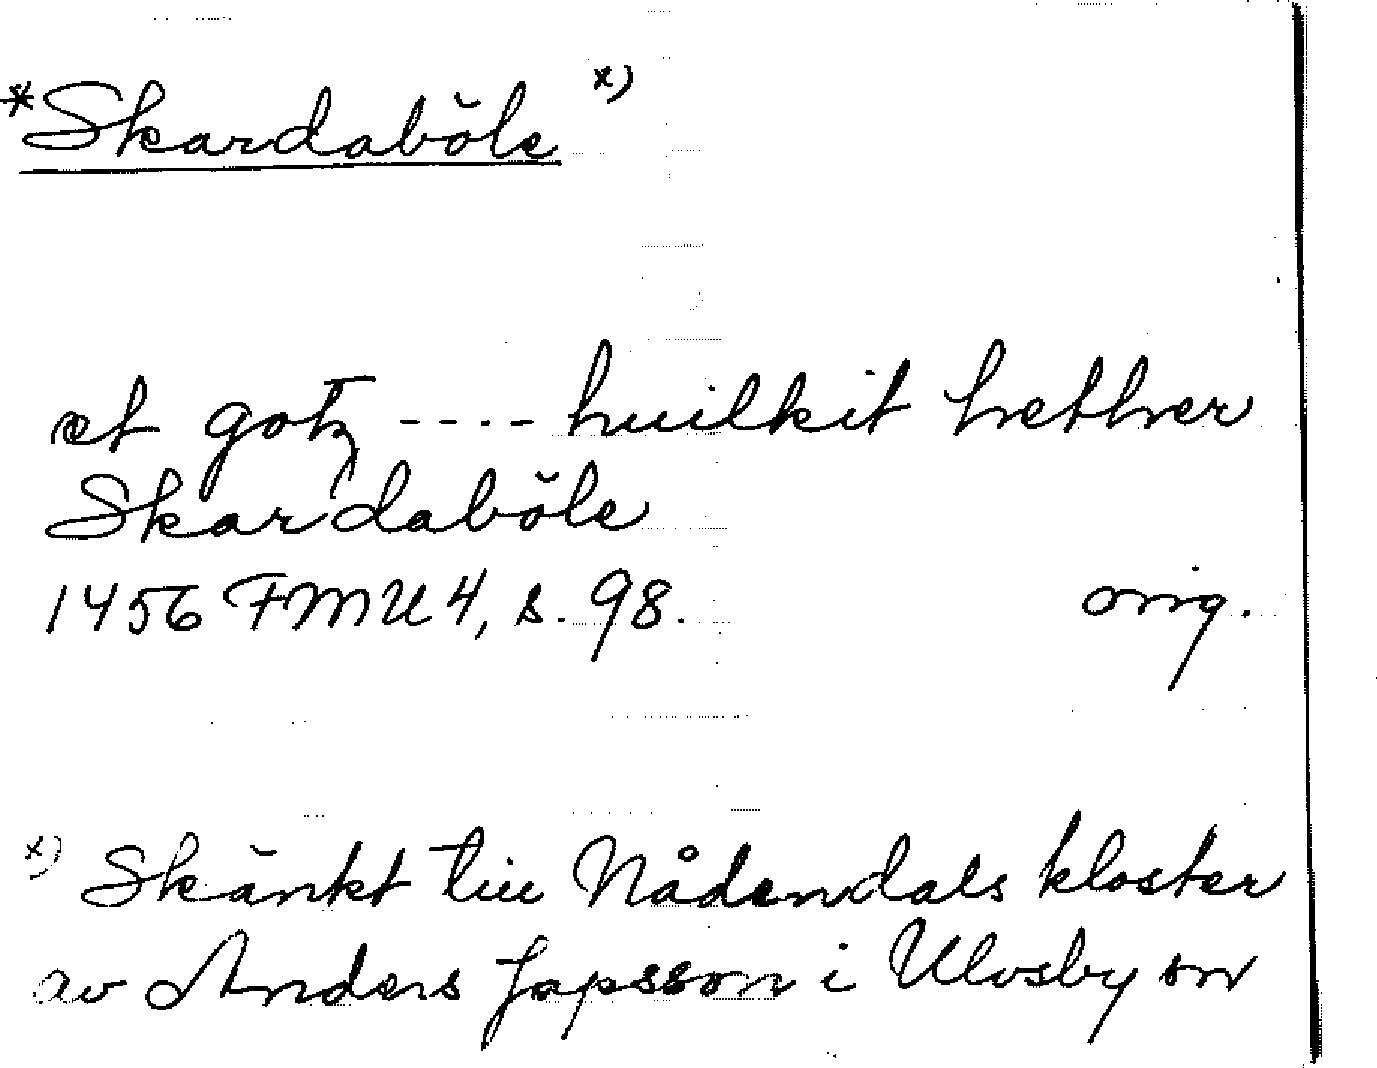 *Skardaböle x)
et gotz ---- huilkit hether
Skardaböle
1456 FMU 4, s. 98. orig.
x) Skänkt till Nådendals kloster
av Anders Japsson i Ulvsby sn